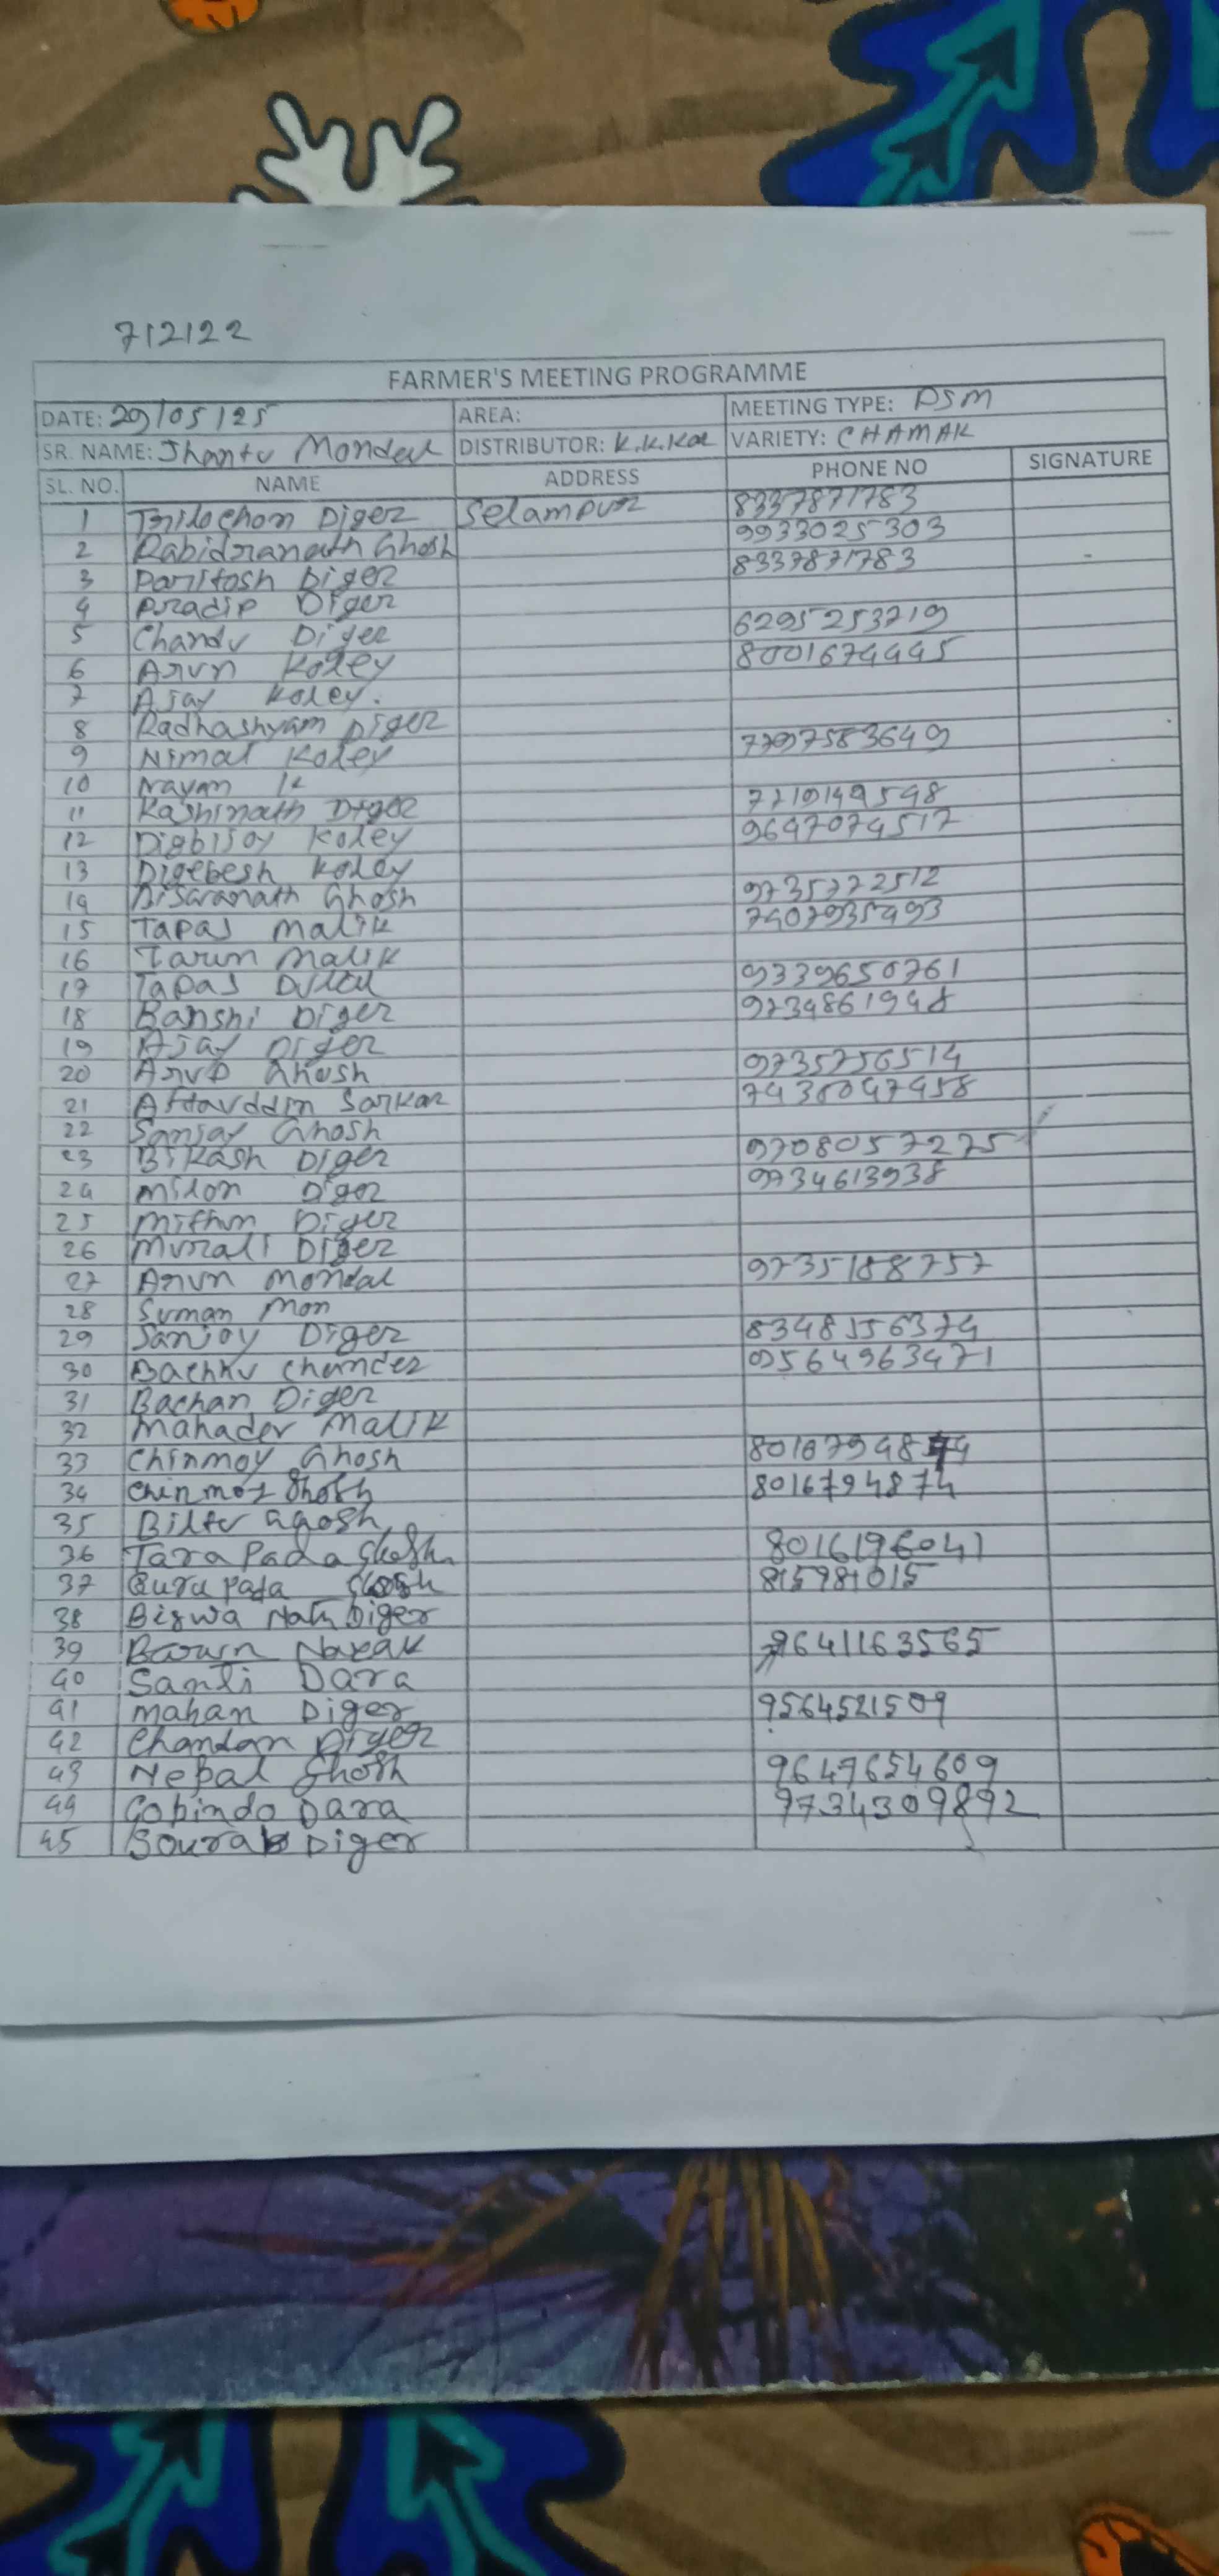 712122
FARMER'S MEETING PROGRAMME
DATE: 29/05/25 AREA: MEETING TYPE: PSM
SR. NAME: Jhantu Mondal DISTRIBUTOR: K.K.Kol VARIETY: CHAMAK
SL. NO. NAME ADDRESS PHONE NO SIGNATURE
1 Trilochon Diger Selampur 8337871783
2 Rabidranath Ghosh 9933025303
3 Paritosh Diger 8337871783
4 Pradip Diger
5 Chandu Diger 6295253719
6 Arun Koley 8001674445
7 Ajay Koley.
8 Radhashyam Diger
9 Nimal Koley 7797583649
10 Nayan K
11 Kashinath Diger 7719149598
12 Digbijoy Koley 9647074517
13 Digebesh Koley
14 Biswanath Ghosh 9735772512
15 Tapas Malik 7407935493
16 Tarun Malik
17 Tapas Dulal 9339650761
18 Banshi Diger 9734861948
19 Ajay Diger
20 Arup Ghosh 9735756514
21 Aftauddin Sarkar 7430047458
22 Sanjay Ghosh
23 Bikash Diger 9708057275
24 Milon Diger 9734613938
25 Mithun Diger
26 Murali Diger
27 Arun Mondal 9735188757
28 Suman Mon
29 Sanjoy Diger 8348156374
30 Bachhu Chander 9564963471
31 Bachan Diger
32 Mahadev Malik
33 Chinmoy Ghosh
34 Chinmoy Ghosh 8016794874
35 Biltu Ghosh
36 Tara Pada Ghosh 8016196041
37 Guru Pada Ghosh 815981015
38 Biswa Nath Diger
39 Barun Nayak 9641163565
40 Santi Dara
41 Mahan Diger 9564521509
42 Chandan Diger
43 Nepal Ghosh 9647654609
44 Gobindo Dara 9734309892
45 Sourab Diger